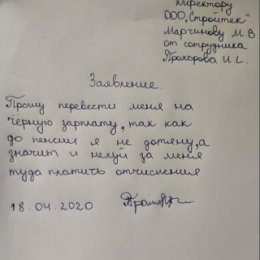 директору
ООО "Стройтек"
Марчинову М.В
от сотрудника
Прохорова И.С.
Заявление.
Прошу перевести меня на
черную зарплату, так как
до пенсии я не дотяну, а
значит и нехуй за меня
туда платить отчисления
18.04.2020